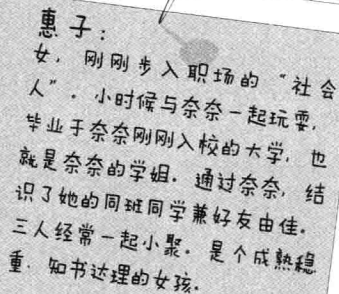 惠子：
女，刚刚步入职场的“社会
人”。小时候与奈奈一起玩耍，
毕业于奈奈刚刚入校的大学，也
就是奈奈的学姐。通过奈奈，结
识了她的同班同学兼好友由佳。
三人经常一起小聚。是个成熟稳
重、知书达理的女孩。